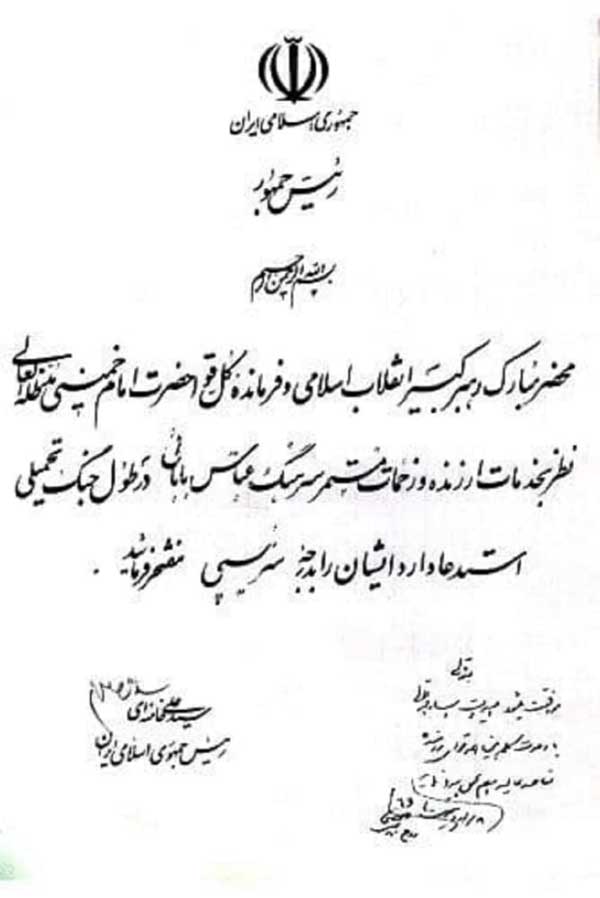 جمهوری اسلامی ایران
رئیس جمهور
بسم الله الرحمن الرحیم
محضر مبارک رهبر کبیر انقلاب اسلامی و فرمانده کل قوا حضرت امام خمینی مدظله العالی
نظر بخدمات ارزنده و زحمات مستمر سرهنگ عباس بابائی در طول جنگ تحمیلی
استدعا دارد ایشان را بدرجه سرتیپی مفتخر فرمائید .
سید علی خامنه‌ای
رئیس جمهوری اسلامی ایران
بسمه تعالی
موافقت میشود